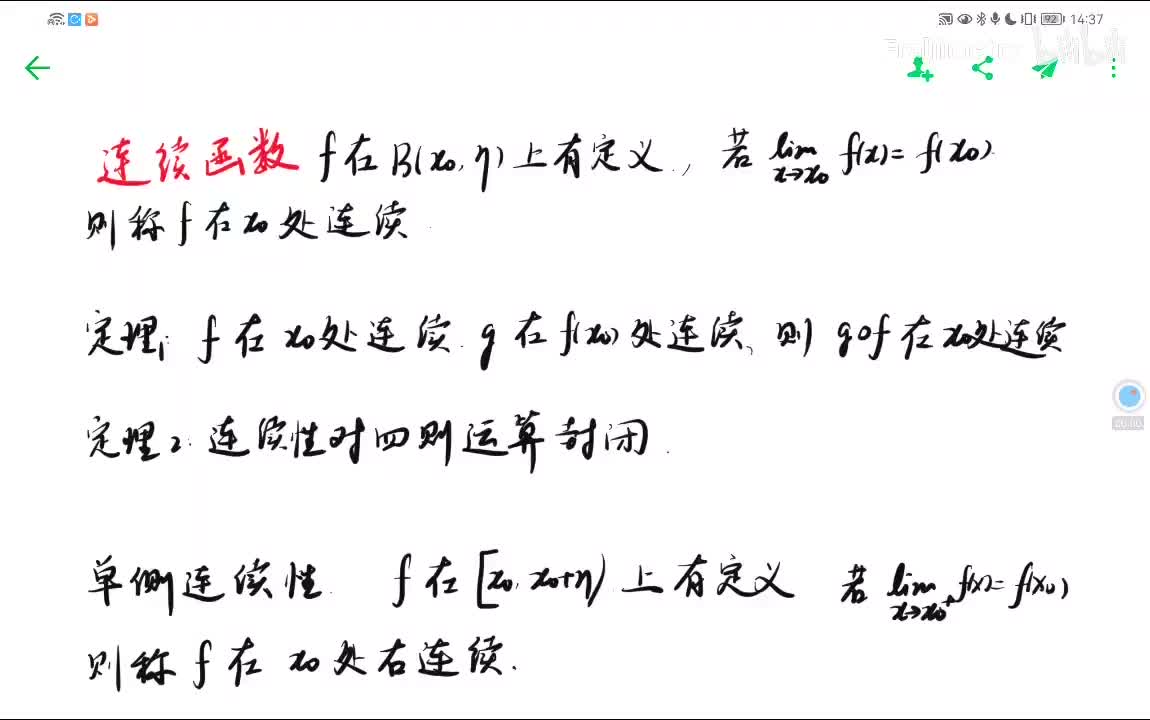 92 14:37
bilibili
连续函数 f在B(x₀,η)上有定义,若 lim x→x₀ f(x)=f(x₀)
则称f在x₀处连续
定理1 f在x₀处连续.g在f(x₀)处连续、则 g∘f在x₀处连续
定理2.连续性对四则运算封闭.
单侧连续性 f在[x₀,x₀+η)上有定义 若 lim x→x₀⁺ f(x)=f(x₀)
则称f在x₀处右连续.